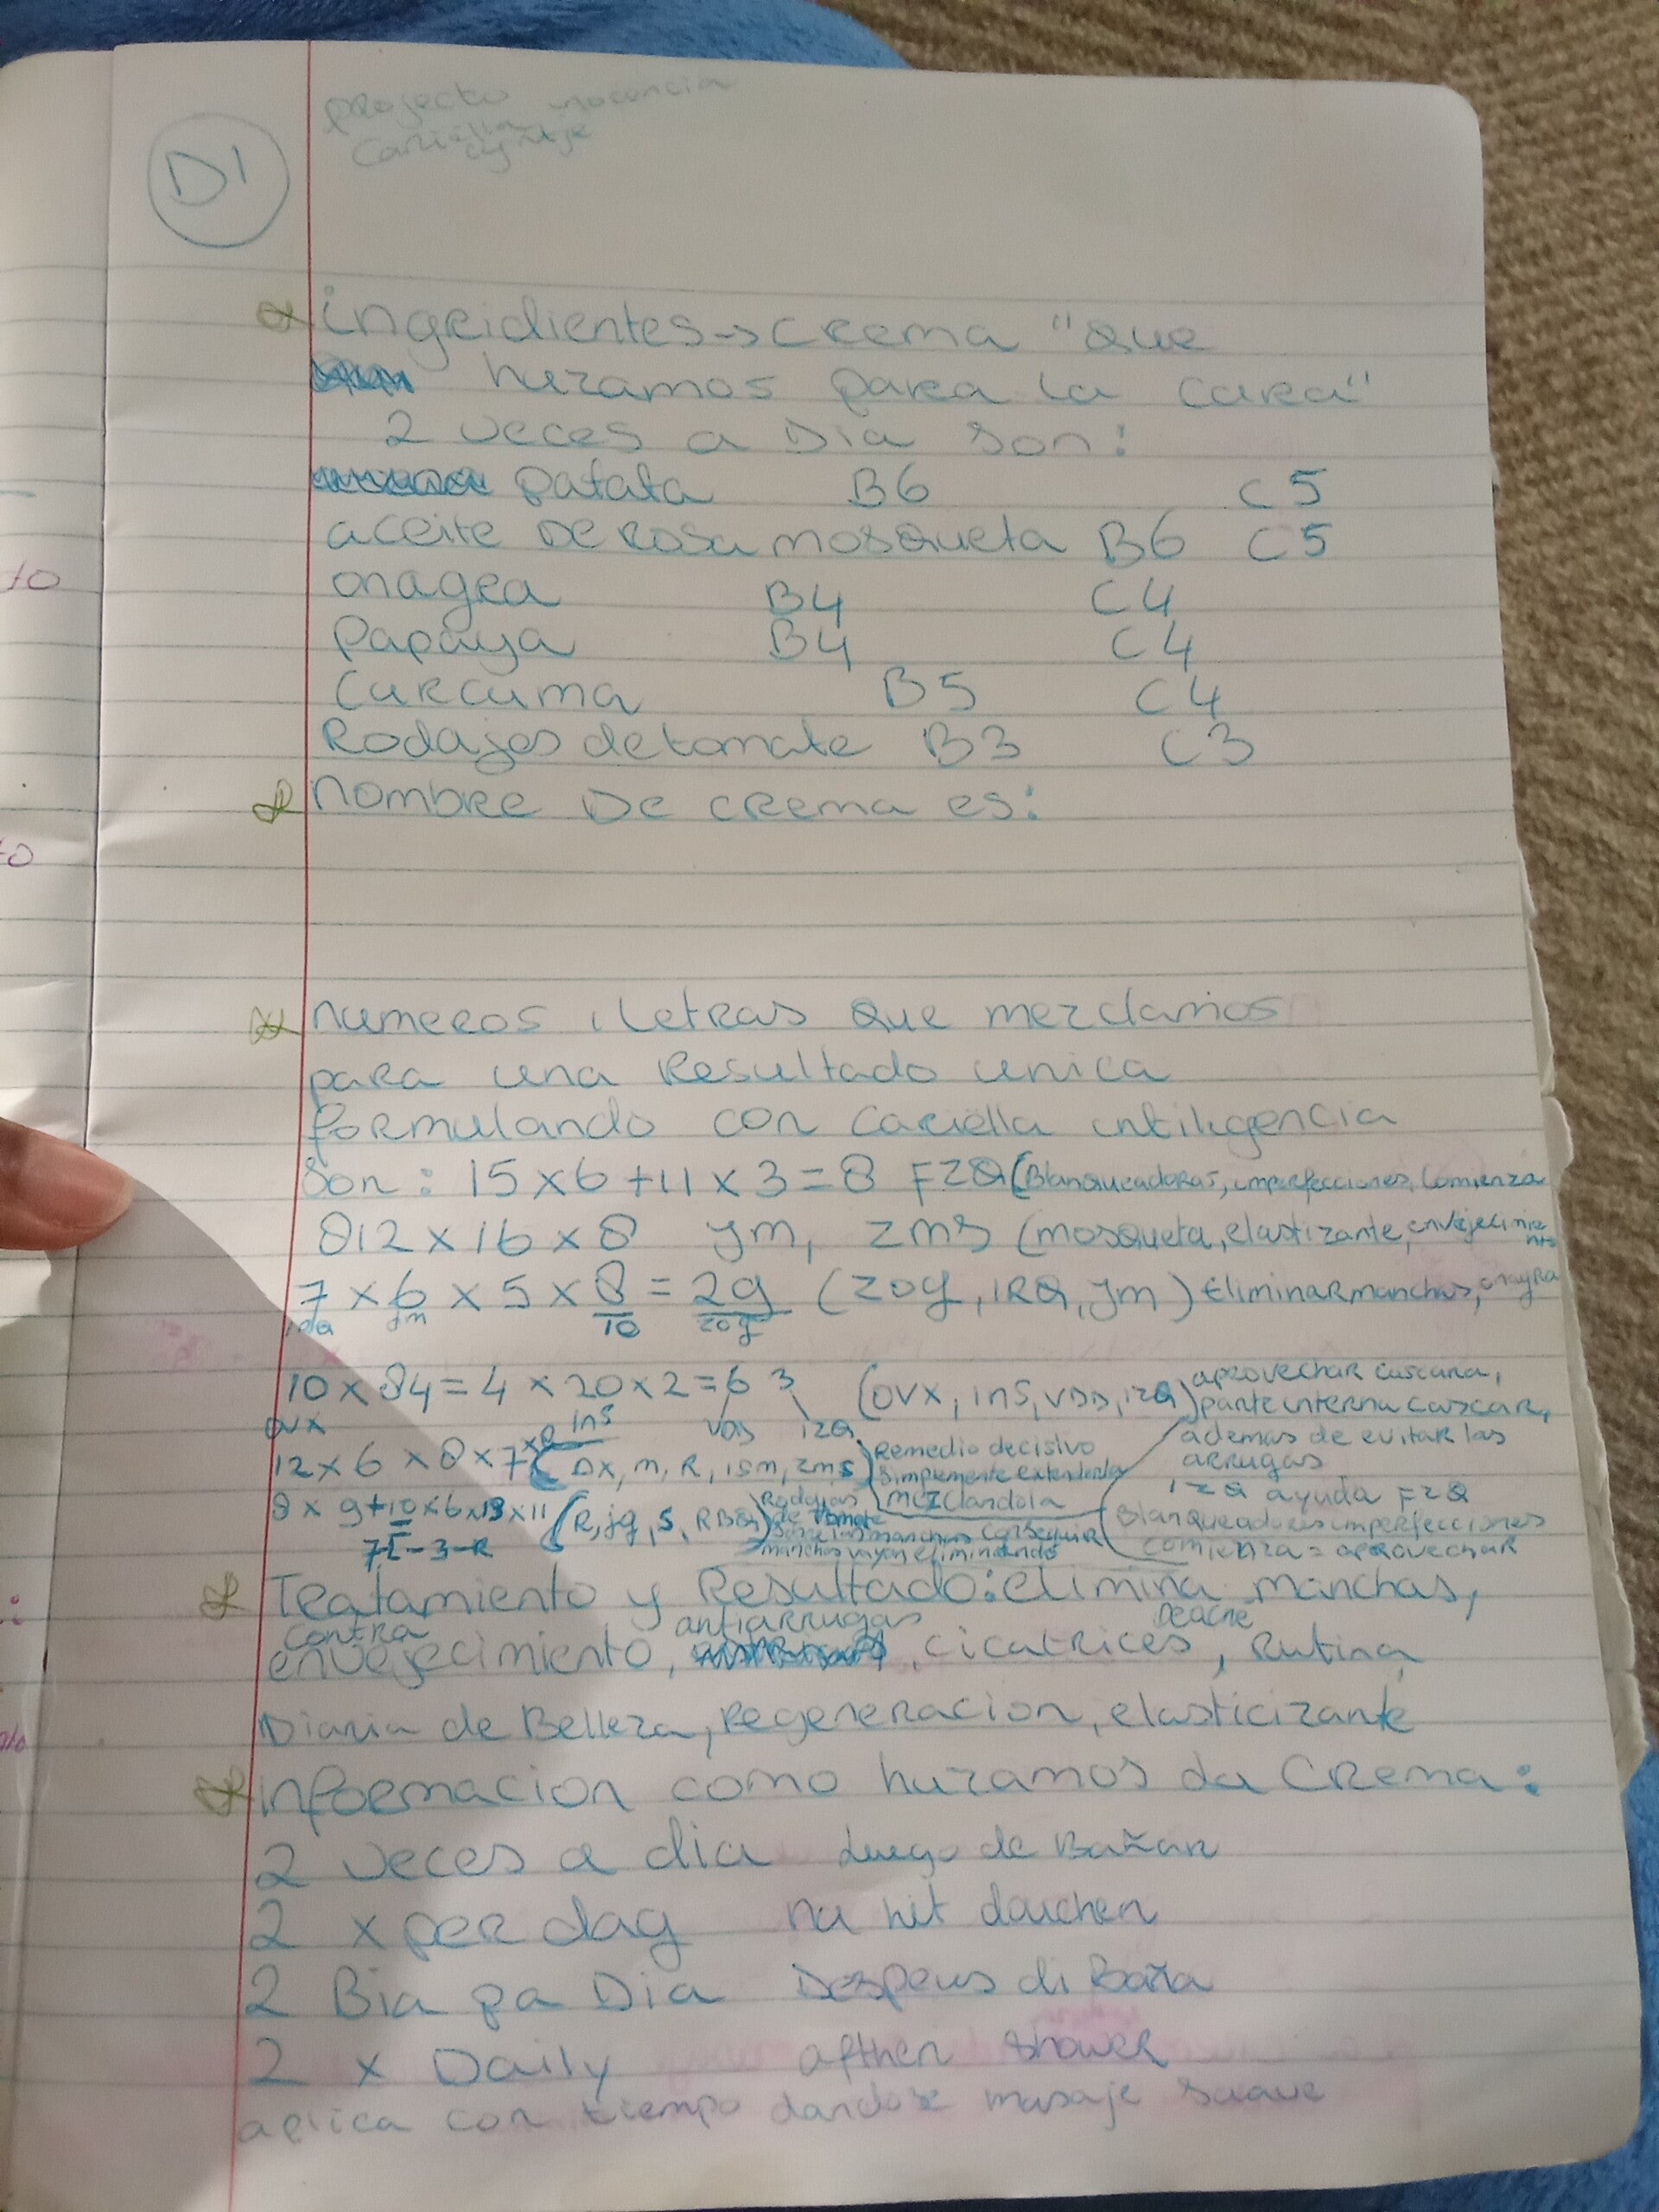 D1
projecto inocencia
ingridientes → crema "que
huzamos para la cara"
2 veces a Dia son:
patata B6 C5
aceite De rosa mosqueta B6 C5
onagra B4 C4
Papaya B4 C4
Curcuma B5 C4
Rodajes de tomate B3 C3
nombre De crema es:
numeros i Letras que mezclamos
para una Resultado unica
formulando con Cariëlla intiligencia
Son: 15 x 6 + 11 x 3 = 8 FZQ (Blanqueadoras, imperfecciones, Comienza
812 x 16 x 8 ym, zms (mosqueta, elastizante, envejecimie
nto
7 x 6 x 5 x 8 = 2g (zog, iRQ, ym) Eliminar manchas, onagra
ym 10 20g
10 x 84 = 4 x 20 x 2 = 6 3 (OVX, ins, VDD, izQ) aprovechar cascara,
ovx ins izQ parte interna cascar,
ademas de evitar las
arrugas
12 x 6 x 8 x 7 x 2 ( DX, m, R, ism, zms) Remedio decisivo
Simplemente extenderla
mezclandola
izQ ayuda FZQ
Blanqueadores imperfecciones
comienza = aprovechar
8 x 9+10 x 6 x 13 x 11 (R, jg, S, RBQ) Rodajas
de Tomate
Sobre las manchas Conseguir
manchas vayan eliminando
7E - 3 - R
Tratamiento y Resultado: elimina manchas,
contra antiarrugas De acne
envejecimiento, , cicatrices, Rutina
Diaria de Belleza, Regeneracion, elasticizante
informacion como huzamos da Crema:
2 veces a dia Luego de Bañar
2 x per dag na het douchen
2 Bia pa Dia Despeus di Baña
2 x Daily afther shower
aplica con tiempo dandose masaje suave